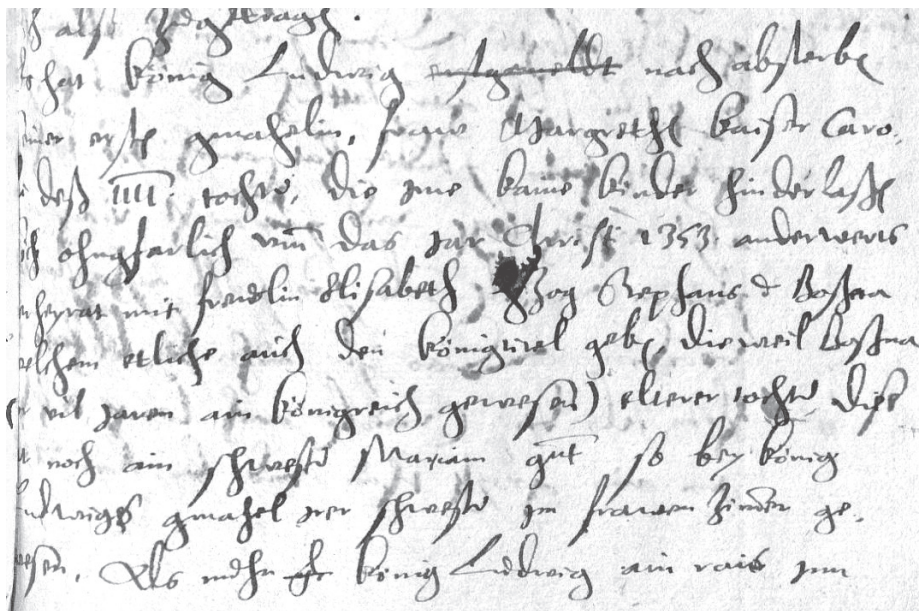 also zugetragen.
hat König Ludwig erstgemeldt nach absterben
erster gmahelin, fraw Margrethen kaiser Caro
deß IIII. tochter, die jme kaine kinder hinderlaßen
ohngfarlich vmb das jar Christi 1353 anderwerts
mit frewlin Elisabeth Stephans d Boßna
etliche auch den königtitel geben, dieweil Boßna
vil jaren ain königreich gewesen) elterer tochter, dise
noch ain schwester Mariam ghet so bey König
gmahel jrer schwester jm frawenzimer ge,
Als König Ludwig ain rais jnn